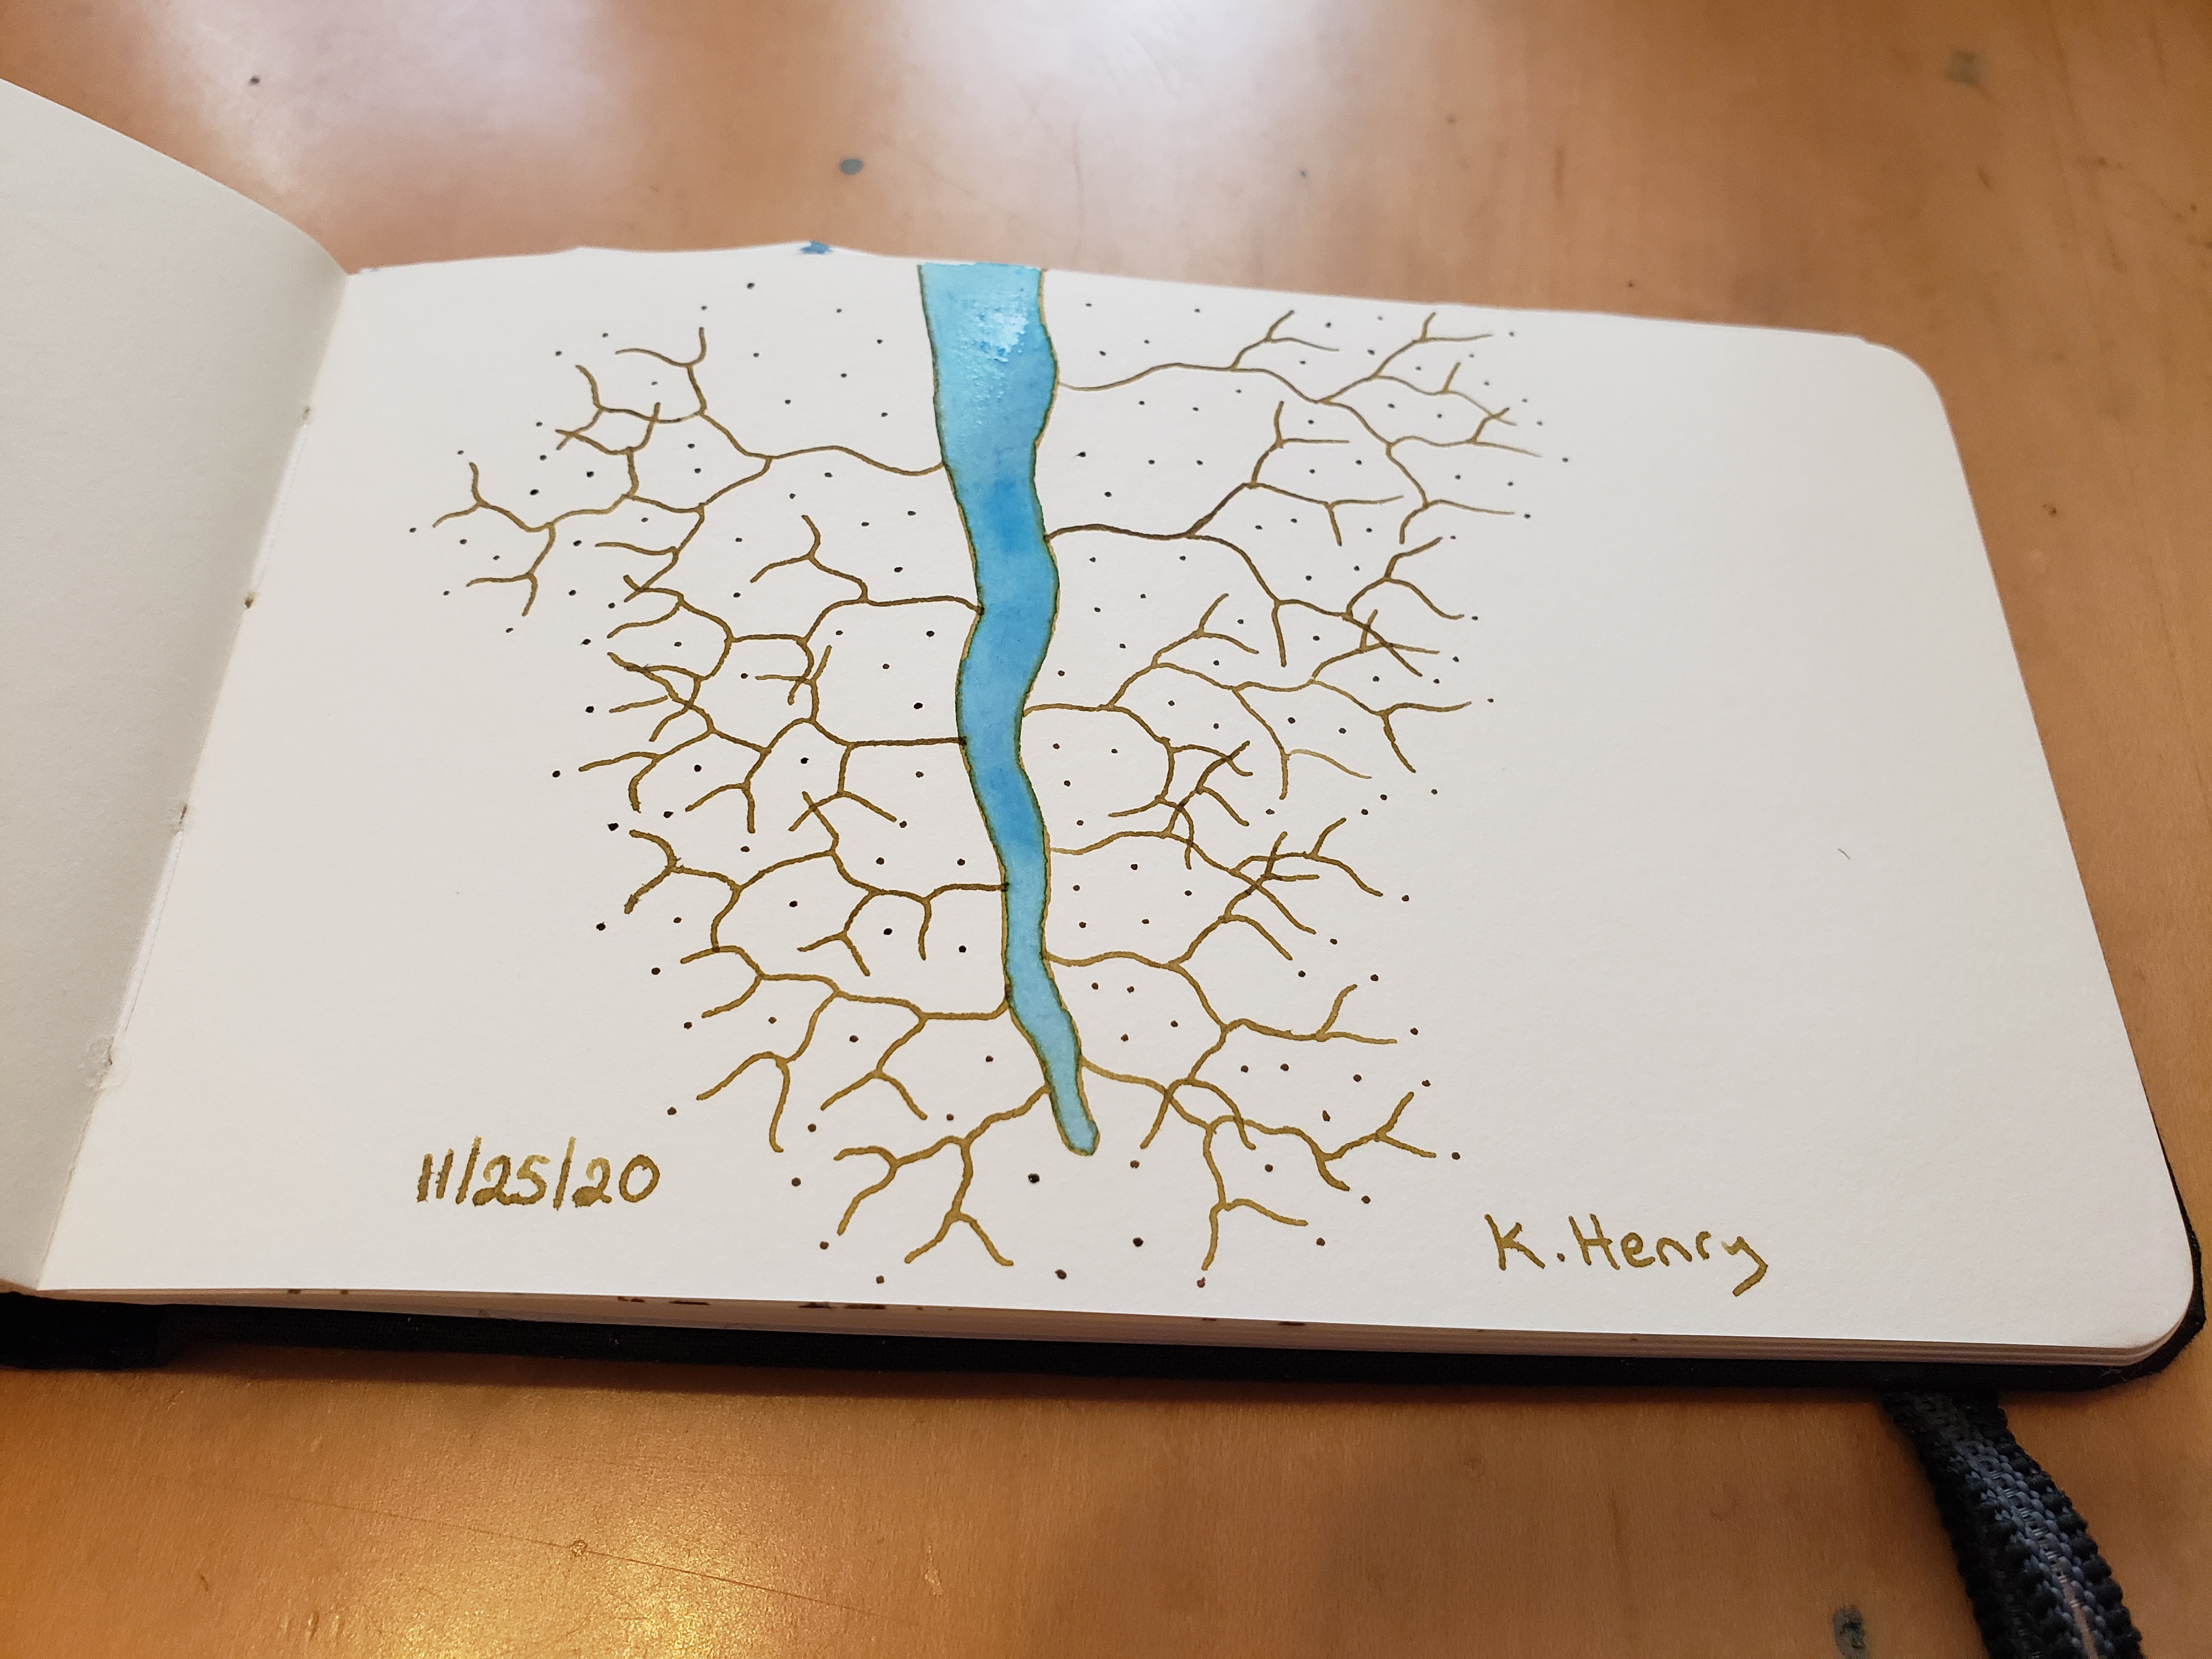 11/25/20
K. Henry